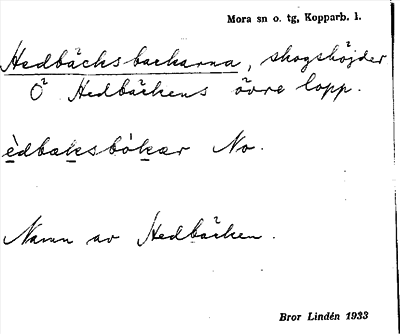 Mora sn o. tg, Kopparb. l.
Hedbäcksbackarna, skogshöjder
Ö Hedbäckens övre lopp.
èdbaksbòkær No.
Namn av Hedbäcken.
Bror Lindén 1933